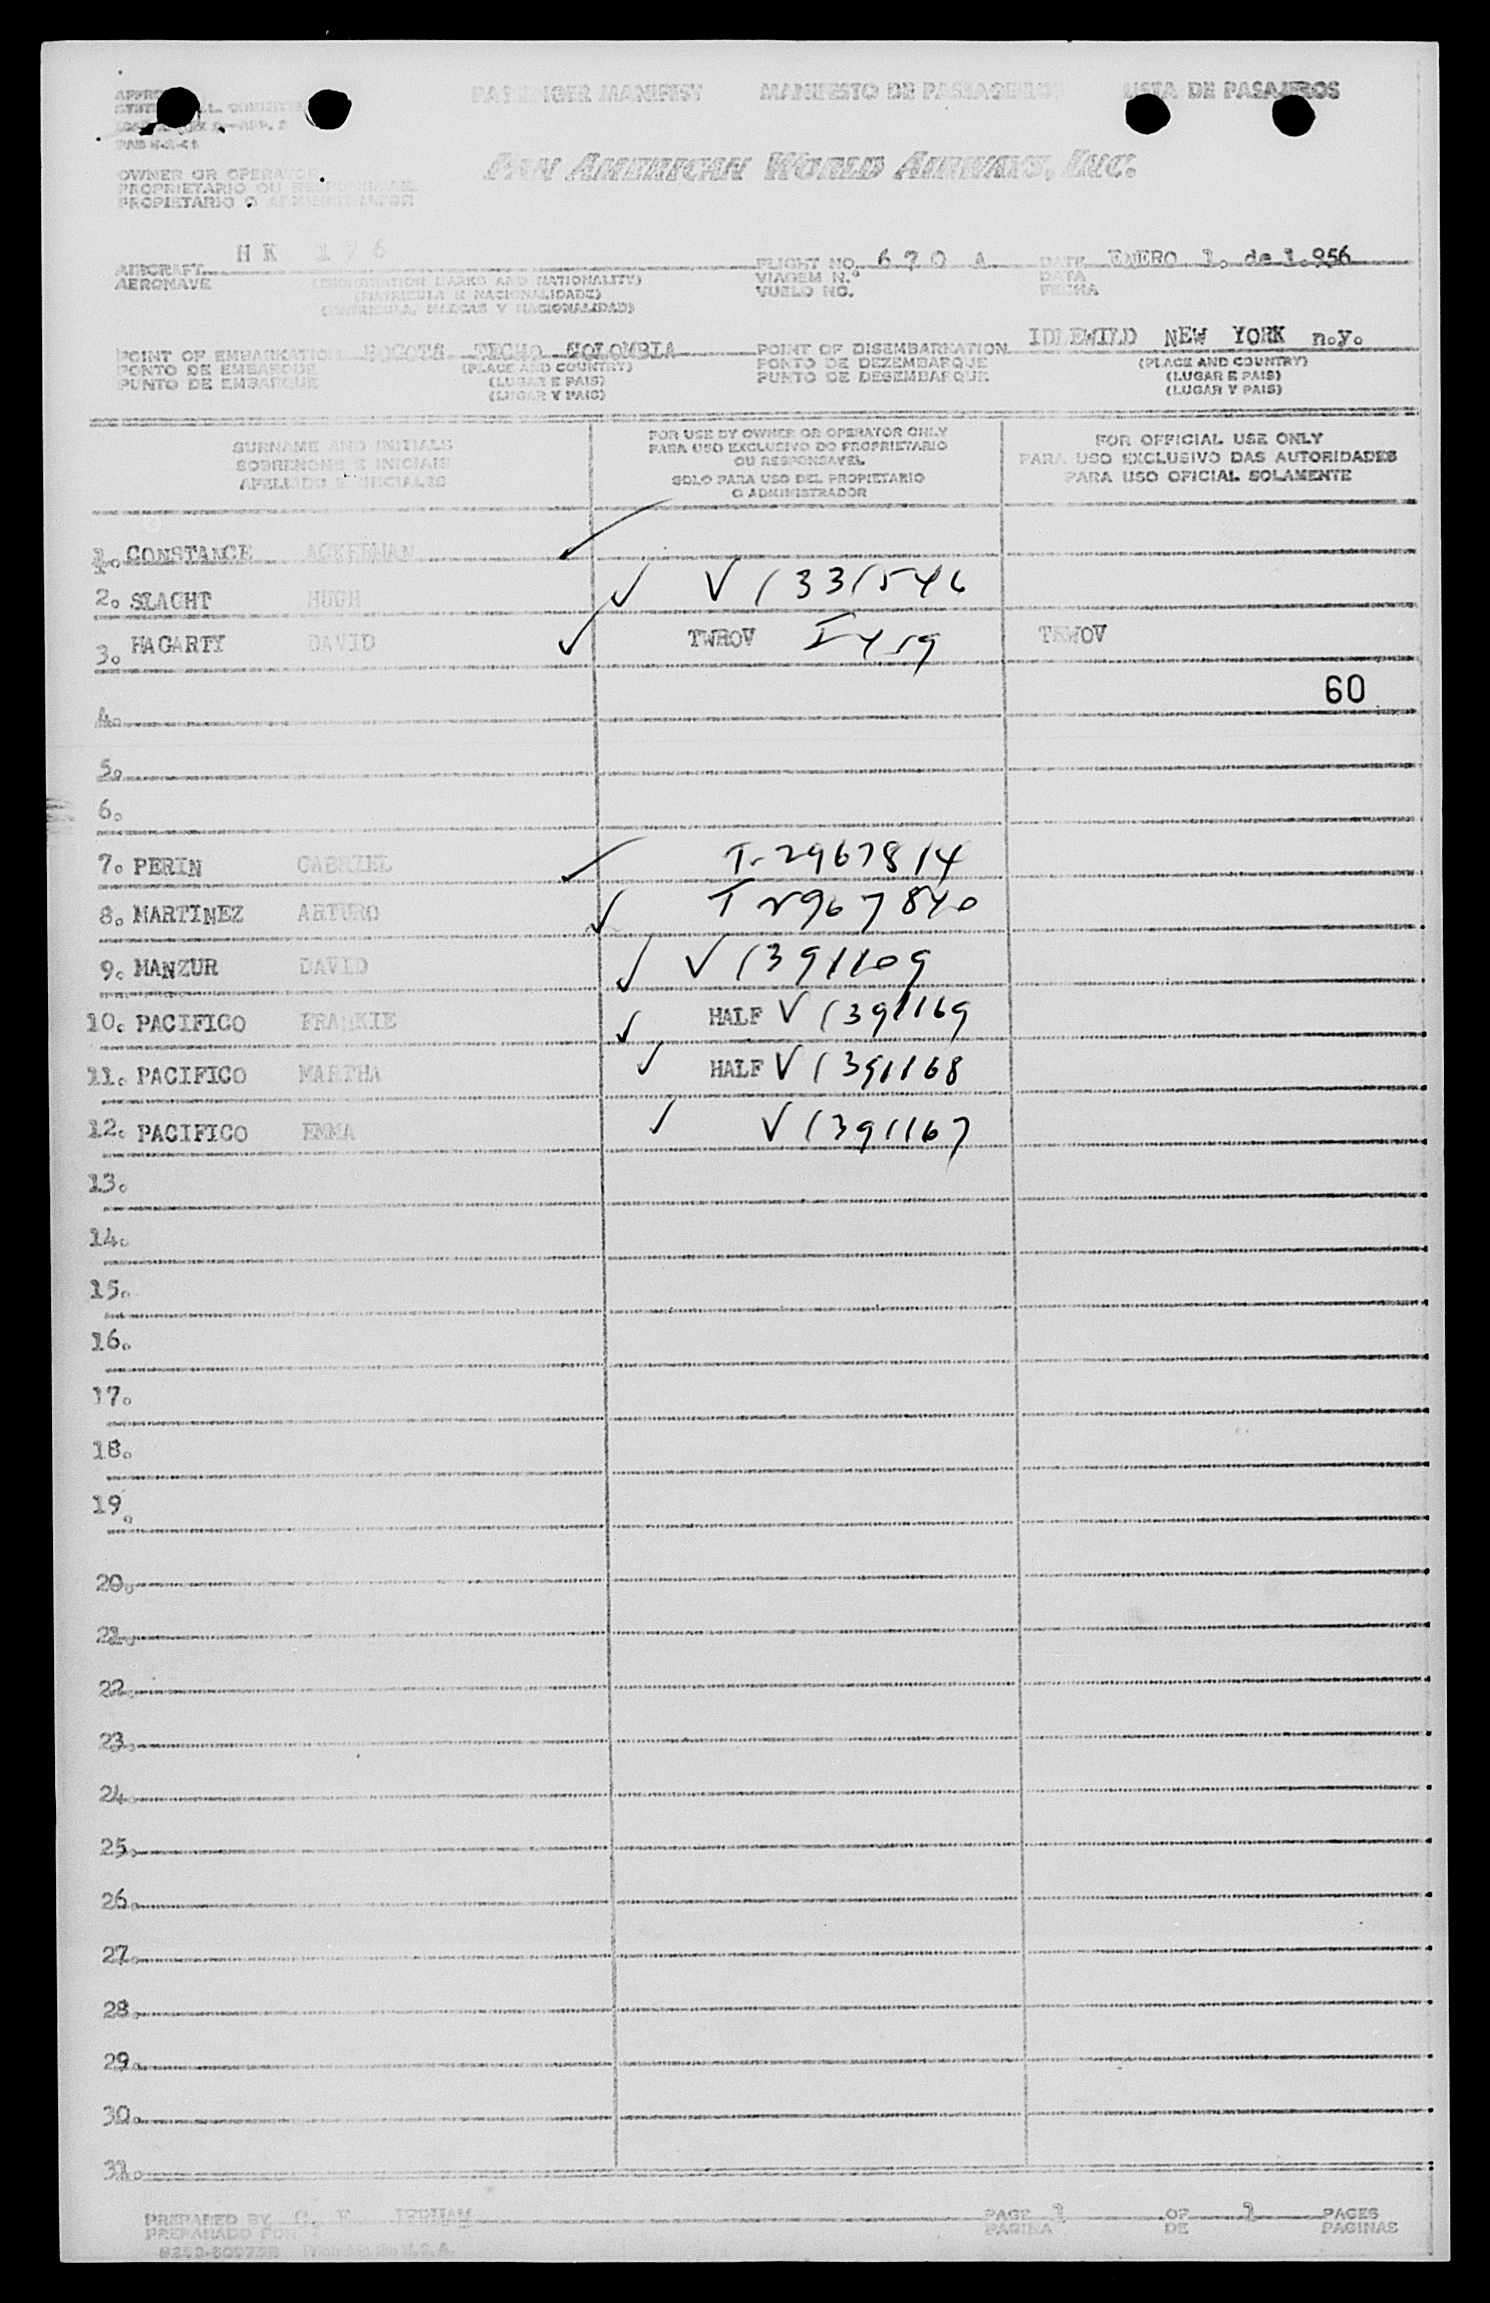 PASSENGER MANIFEST MANIFESTO DE PASSAGEIROS LISTA DE PASAJEROS
PAN AMERICAN WORLD AIRWAYS, INC.
OWNER OR OPERATOR
PROPRIETARIO OU RESPONSAVEL
PROPIETARIO O ADMINISTRADOR
AIRCRAFT H K 176 FLIGHT NO. 670 A DATE ENERO 1. de 1.956
AERONAVE (REGISTRATION MARKS AND NATIONALITY) VIAGEM N.º DATA
(MATRICULA E NACIONALIDADE) VUELO NO. FECHA
(MATRICULA, MARCAS Y NACIONALIDAD)
POINT OF EMBARKATION TECHO POINT OF DISEMBARKATION IDLEWILD NEW YORK n.y.
PONTO DE EMBARQUE (PLACE AND COUNTRY) PONTO DE DEZEMBARQUE (PLACE AND COUNTRY)
PUNTO DE EMBARQUE (LUGAR E PAIS) PUNTO DE DESEMBARQUE (LUGAR E PAIS)
(LUGAR Y PAIS) (LUGAR Y PAIS)
SURNAME AND INITIALS FOR USE BY OWNER OR OPERATOR ONLY FOR OFFICIAL USE ONLY
SOBRENOME E INICIAIS PARA USO EXCLUSIVO DO PROPRIETARIO PARA USO EXCLUSIVO DAS AUTORIDADES
OU RESPONSAVEL
APELLIDO E INICIALES SOLO PARA USO DEL PROPIETARIO PARA USO OFICIAL SOLAMENTE
O ADMINISTRADOR
1. CONSTANCE ACKERMAN ✓
2. SLAGHT HUGH ✓ V 1331546
3. HAGARTY DAVID ✓ TWROV TRWOV
60
4.
5.
6.
7. PERIN GABRIEL ✓ T-2967814
8. MARTINEZ ARTURO ✓ T 2967840
9. MANZUR DAVID ✓ V 1391109
10. PACIFICO FRANKIE ✓ HALF V 1391169
11. PACIFICO MARTHA ✓ HALF V 1391168
12. PACIFICO EMMA ✓ V 1391167
13.
14.
15.
16.
17.
18.
19.
20.
21.
22.
23.
24.
25.
26.
27.
28.
29.
30.
31.
PREPARED BY PAGE 1 OF 1 PAGES
PREPARADO POR PAGINA DE PAGINAS